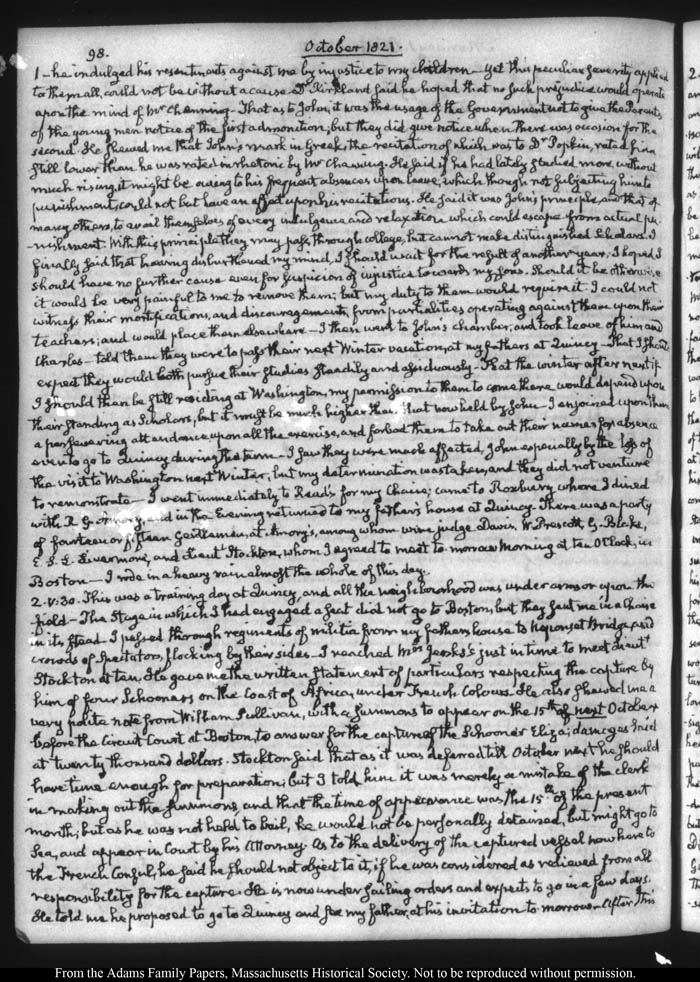 98.
October 1821.
1 – he indulged his resentments against me by injustice to my children – Yet this peculiar severity applied
to them all, could not be without a cause. Dr Kirkland said he hoped that no such prejudice would operate
upon the mind of Mr Channing – That as to John, it was the usage of the Government not to give the Parents
of the young men notice of the first admonition; but they did give notice when there was occasion for the
second. He shewed me that John's mark in Greek, the recitation of which was to Dr Popkin, rated him
still lower than he was rated in rhetoric by Mr Channing. He said if he had lately studied more, without
much rising, it might be owing to his frequent absences upon leave, which though not subjecting him to
punishment, could not but have an effect upon his recitations. He said it was John's principle, and that of
many others, to avail themselves of every indulgence and relaxation which could escape from actual pu-
-nishment. With this principle they may pass through college, but cannot make distinguished Scholars. I
finally said that having disburthened my mind, I should wait for the result of another year. I hoped I
should have no further cause even for suspicion of injustice towards my Sons. Should it be otherwise
it would be very painful to me to remove them; but my duty to them would require it. I could not
witness their mortifications, and discouragements, from partialities operating against them upon their
teachers; and would place them elsewhere – I then went to John's chamber, and took leave of him and
Charles – told them they were to pass their next Winter vacation, at my father's at Quincy – That I should
expect they would both pursue their studies steadily and assiduously – That the winter after next if
I should then be still residing at Washington, my permission to them to come there would depend upon
their standing as Scholars, but it must be much higher than that now held by John – I enjoined upon them
a persevering attendance upon all the exercises, and forbad them to take out their names for absence
even to go to Quincy during the term – I saw they were much affected, John especially by the loss of
the visit to Washington next Winter; but my determination was taken, and they did not venture
to remonstrate – I went immediately to Read's for my Chaise; came to Roxbury where I dined
with R. G. Amory, and in the Evening returned to my father's house at Quincy. There was a party
of fourteen or fifteen Gentlemen, at Amory's, among whom were judge Davis, W. Prescott, G. Blake,
E. S. L. Livermore, and Lieutt Stockton, whom I agreed to meet to-morrow Morning at ten O'Clock, in
Boston – I rode in a heavy rain almost the whole of this day.
2. V:30. This was a training day at Quincy, and all the neighbourhood was under arms or upon the
field – The Stage in which I had engaged a seat did not go to Boston, but they sent me in a Chaise
in its stead. I passed through regiments of militia from my father's house to Neponset Bridge, and
crowds of Spectators, flocking by their sides – I reached Mrs Jenks's just in time to meet Lieutt
Stockton at ten. He gave me the written statement of particulars respecting the capture by
him of four Schooners on the Coast of Africa, under French Colours. He also shewed me a
very polite note from William Sullivan, with a summons to appear on the 15th of next October
before the Circuit Court at Boston, to answer for the capture of the Schooner Eliza; damages laid
at twenty thousand dollars. Stockton said that as it was deferred till October next he should
have time enough for preparation; but I told him it was merely a mistake of the clerk
in making out the summons, and that the time of appearance was the 15th of the present
month; but as he was not held to bail, he would not be personally detained, but might go to
Sea, and appear in Court by his Attorney. As to the delivery of the captured vessel now here to
the French Consul, he said he should not object to it, if he was considered as relieved from all
responsibility for the capture. He is now under sailing orders and expects to go in a few days.
He told me he proposed to go to Quincy and see my father, at his invitation to-morrow – After this
From the Adams Family Papers, Massachusetts Historical Society. Not to be reproduced without permission.